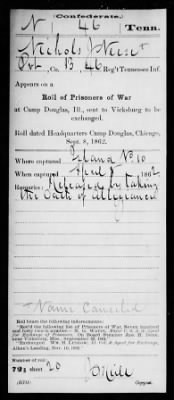 (Confederate.)
N 46 Tenn.
Nichols
Pvt, Co. B, 46 Reg't Tennessee Inf.
Appears on a
Roll of Prisoners of War
at Camp Douglas, Ill., sent to Vicksburg to be
exchanged.
Roll dated Headquarters Camp Douglas, Chicago,
Sept. 8, 1862.
Where captured Island No 10
When captured April 8, 1862
Remarks: Released by taking
the Oath of Allegiance
Name Canceled
Roll bears the following indorsements:
Number of roll:
721; sheet 20
Copyist.